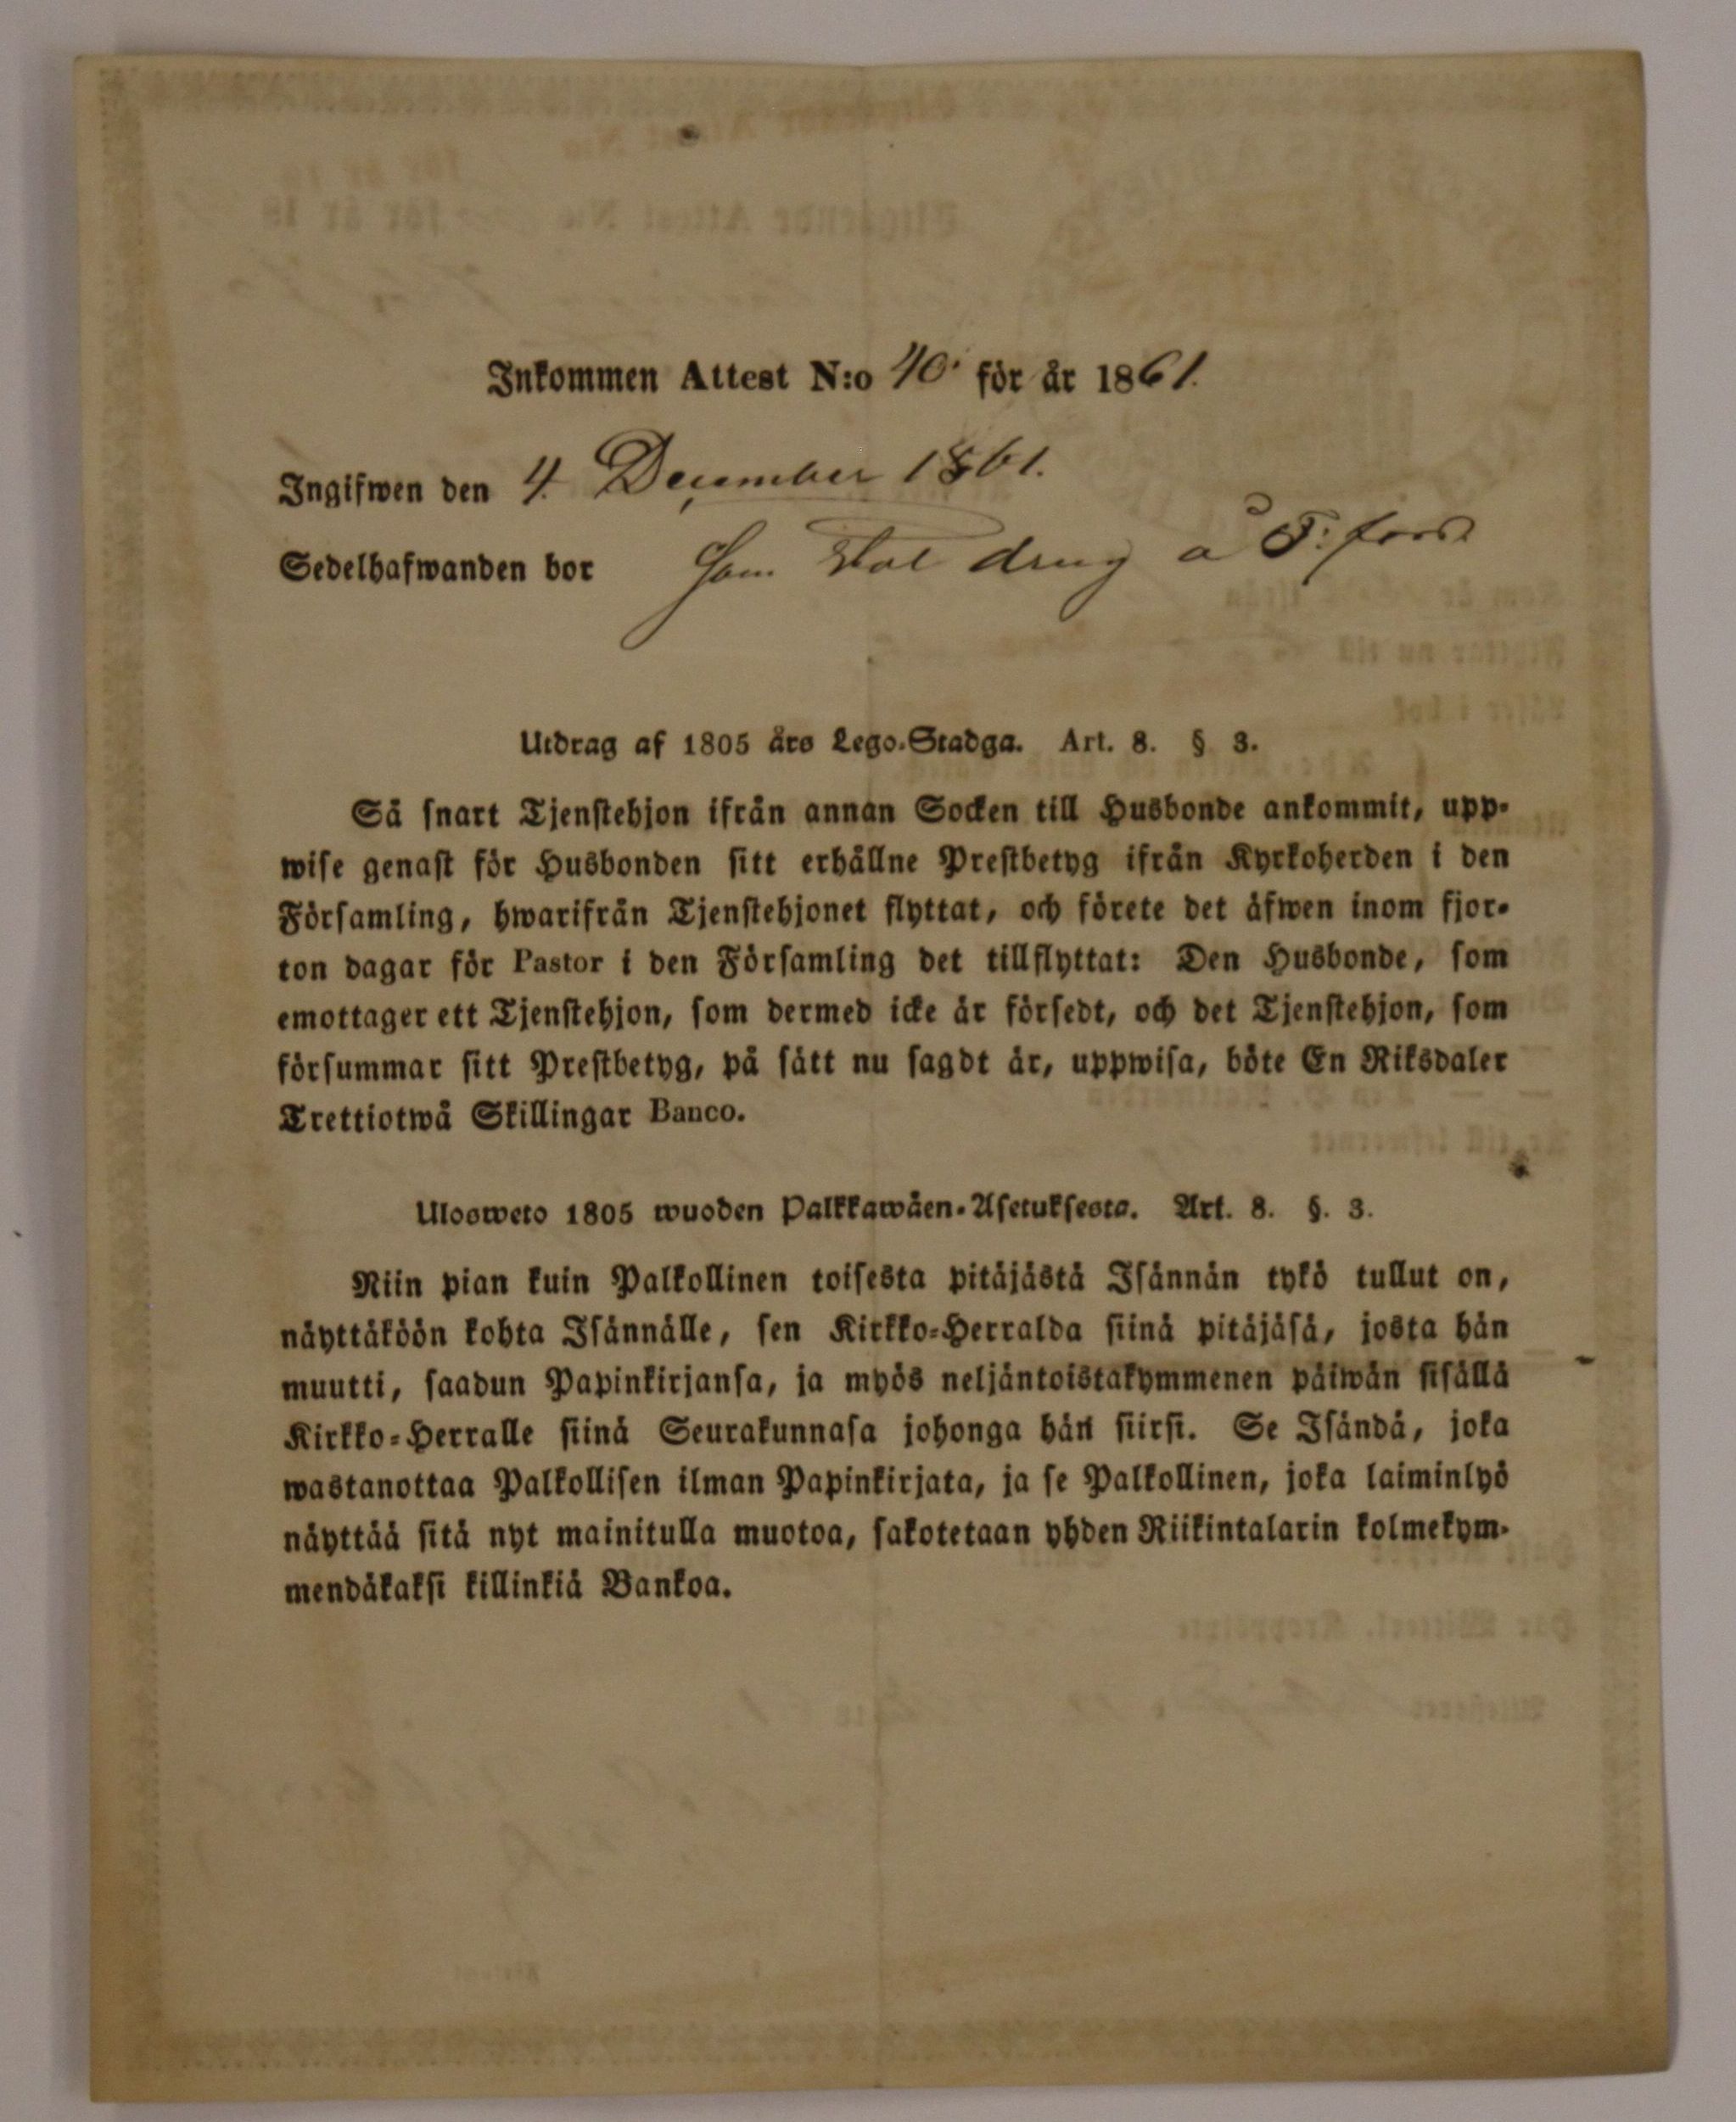 Inkommen Attest N:o 40. för år 1861.
Ingifwen den 4. December 1861.
Sedelhafwanden bor Som dräng å
Utdrag af 1805 års Lego-Stadga. Art. 8. § 3.
Så snart Tjenstehjon ifrån annan Socken till Husbonde ankommit, upp-
wise genast för Husbonden sitt erhållne Prestbetyg ifrån Kyrkoherden i den
Församling, hwarifrån Tjenstehjonet flyttat, och förete det äfwen inom fjor-
ton dagar för Pastor i den Församling det tillflyttat: Den Husbonde, som
emottager ett Tjenstehjon, som dermed icke är försedt, och det Tjenstehjon, som
försummar sitt Prestbetyg, på sätt nu sagdt är, uppwisa, böte En Riksdaler
Trettiotwå Skillingar Banco.
Ulosweto 1805 wuoden Palkkawäen-Asetuksesta. Art. 8. §. 3.
Niin pian kuin Palkollinen toisesta pitäjästä Isännän tykö tullut on,
näyttäköön kohta Isännälle, sen Kirkko-Herralda siinä pitäjäsä, josta hän
muutti, saadun Papinkirjansa, ja myös neljäntoistakymmenen päiwän sisällä
Kirkko-Herralle siinä Seurakunnasa johonga hän siirsi. Se Isändä, joka
wastanottaa Palkollisen ilman Papinkirjata, ja se Palkollinen, joka laiminlyö
näyttää sitä nyt mainitulla muotoa, sakotetaan yhden Riikintalarin kolmekym-
mendäkaksi killinkiä Bankoa.